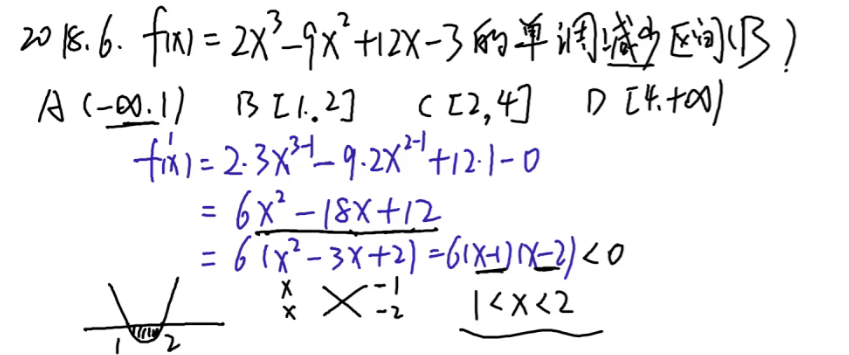 2018.6. f(x)=2x³-9x²+12x-3的单调减少区间(B)
A (-∞.1) B [1.2] C [2,4] D [4.+∞)
f'(x)=2·3x³⁻¹-9·2x²⁻¹+12·1-0
=6x²-18x+12
=6(x²-3x+2)=6(x-1)(x-2)<0
x -1
x -2
1<x<2
1 2